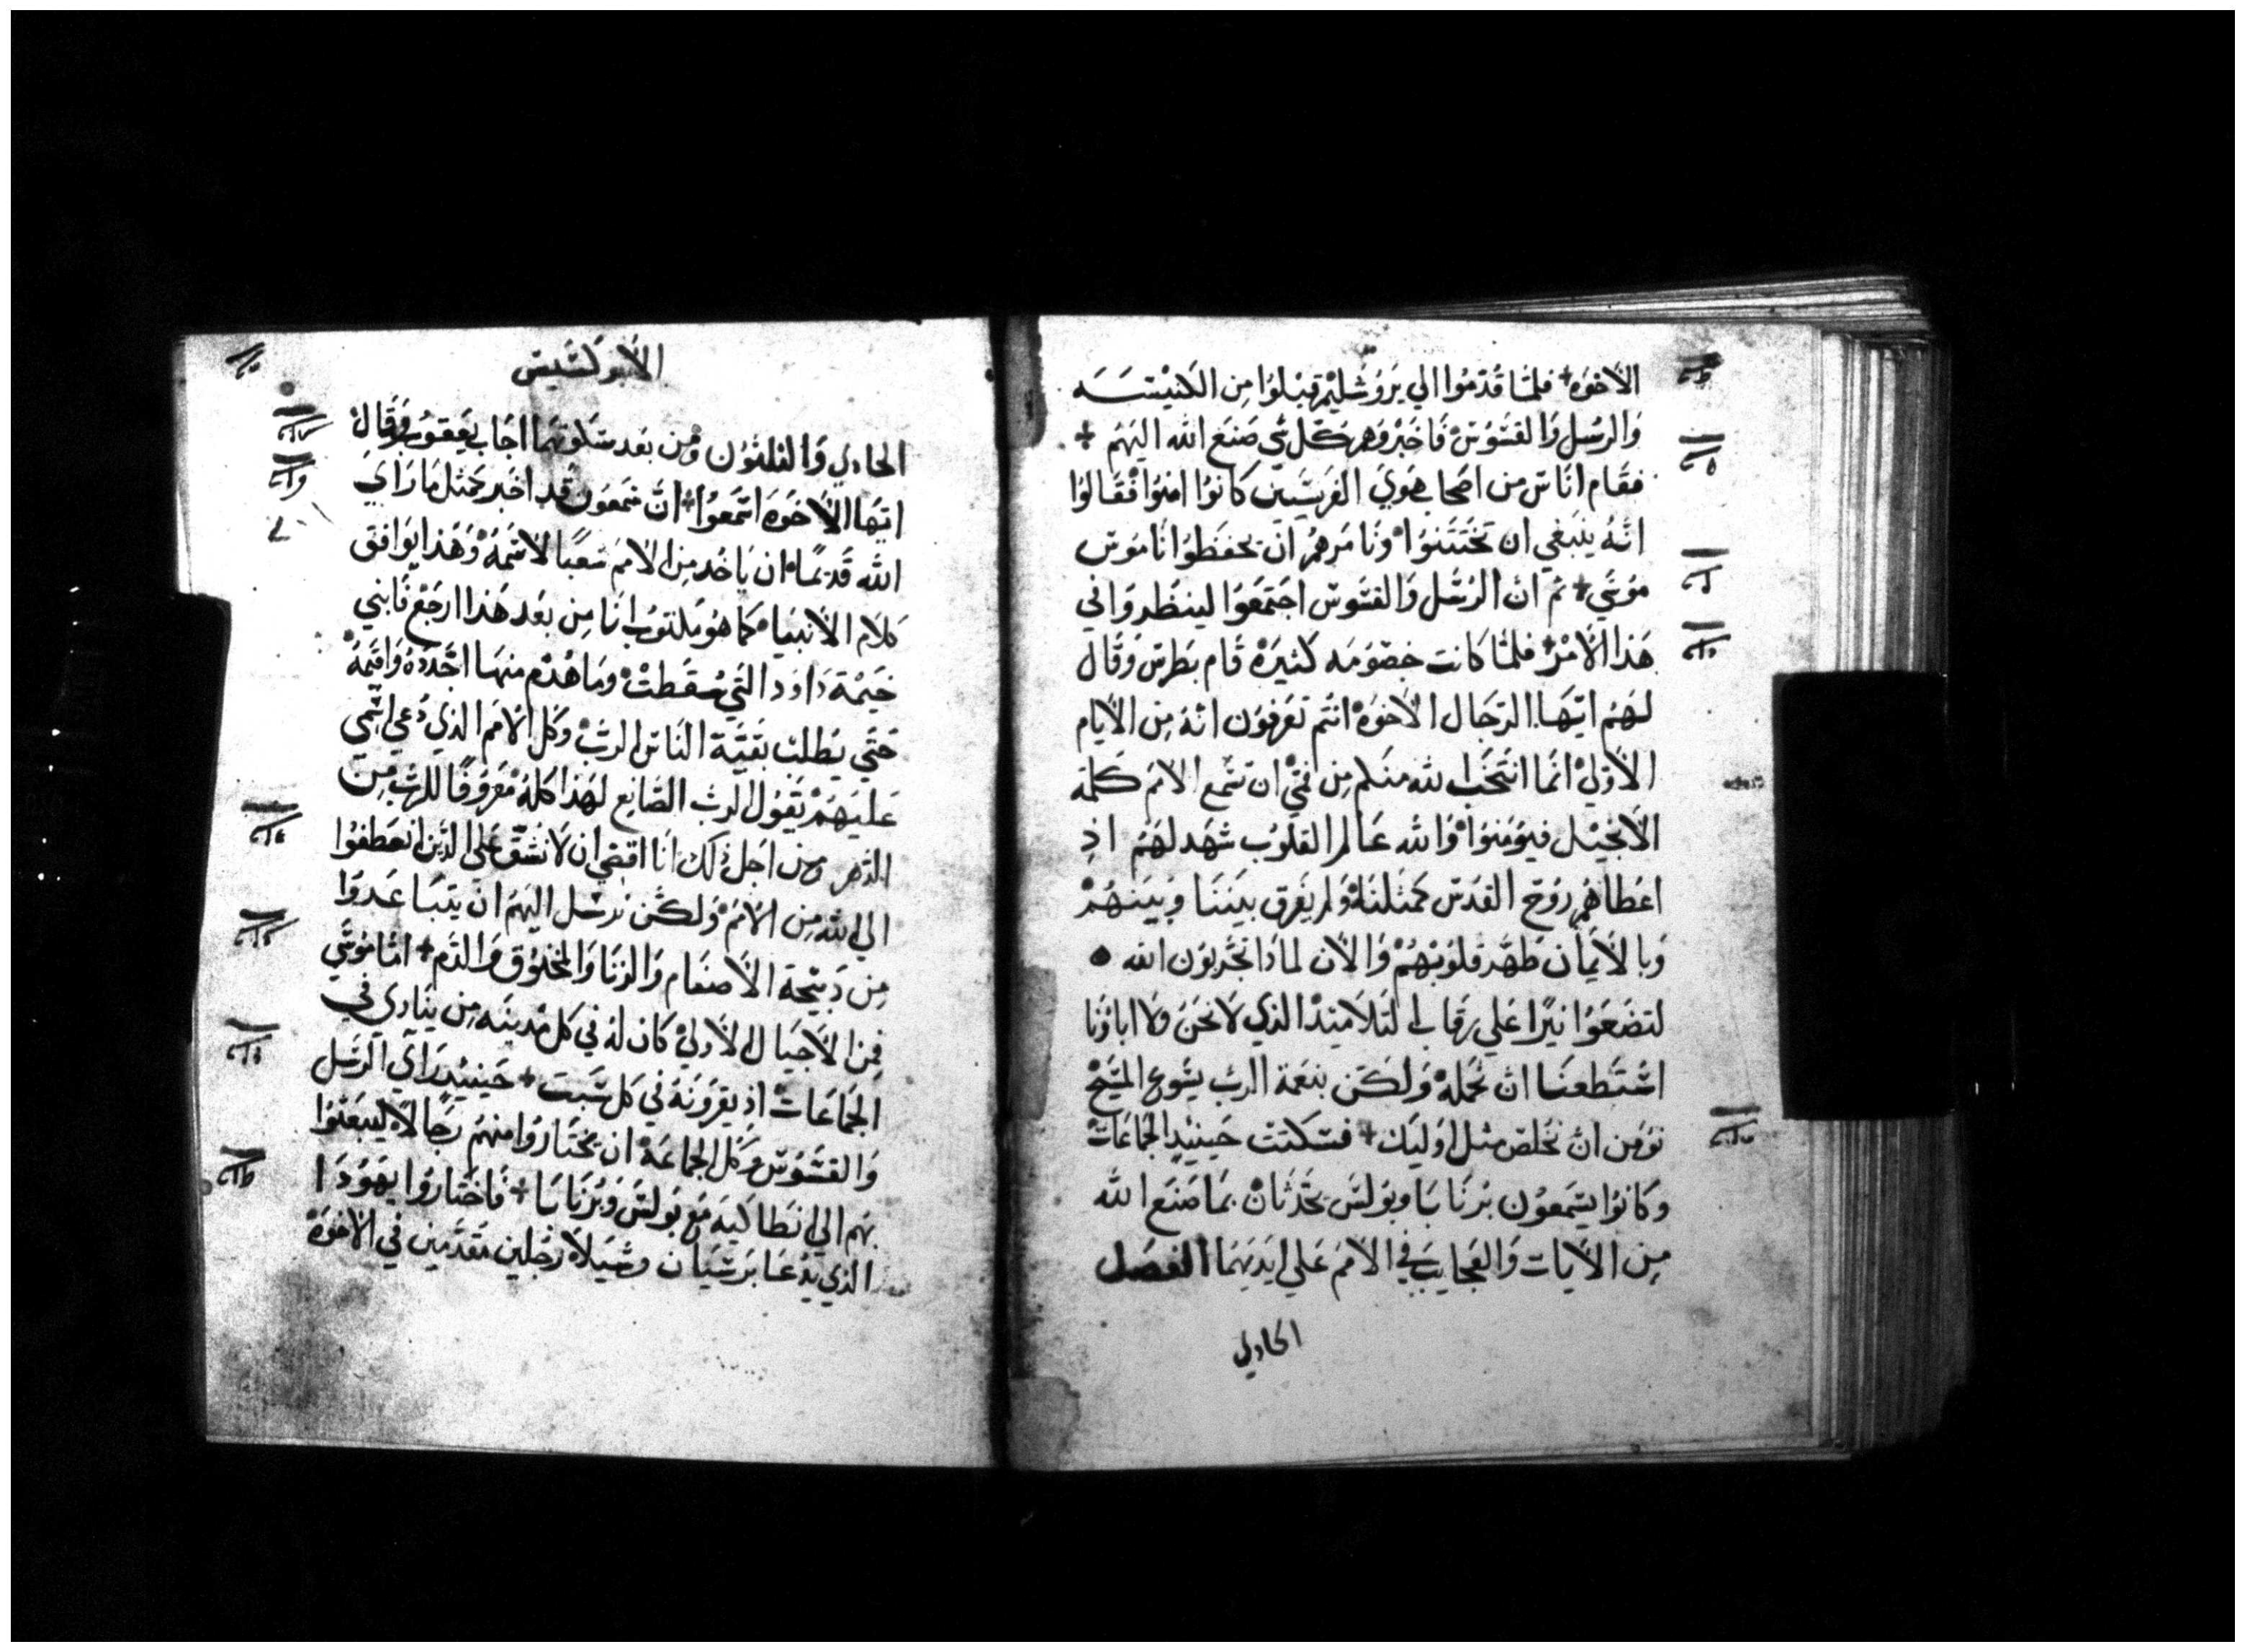 الاخوه + فلمَّا قُدمُوا الي يَرُوُشليْم قبلوُا مِن الكنيْسَه
وَالرسُل وَالقسُوُسْ فَاخبرُوهم بكل شي صَنعَ الله اليهمْ +
فقام اناسْ من اصحاب هَوي الفريسَين كانوُا امنوُا فقالوُا
انهُ ينبغي ان تختتنوُا وَنامرهمُ ان يحفظوُا نامُوس
مُوسَي + ثم ان الرسُل وَالقسُوس اجتمعَوا لينظروا في
هَذا الامرْ + فلمَّا كانت خصوُمَه كثيرَة قام بَطرسْ وَقال
لهمُ ايهَا الرجَال الاخوَه انتم تعرَفوُن انهُ مِن الايام
الاوَليْ انمَا انتخَب الله منكم مِن فمي ان تسَمع الامَم كلمَة
الانجيْل فيوُمنوُا وَالله عَالم القلوُب شَهد لهَمُ اذ
اعَطاهمُ روُح القدسْ كمثلنَا وَلم يفرق بيننَا وَبينهُمْ
وَبالايمَان طَهَّر قلوُبَهُمْ وَالان لماذا تجربوُن الله •
لتضَعوُا نيرًا عَلي رقاب التلاميْذ الذي لا نحَن ولا اباؤنا
اسْتطعنَا ان نحملهْ وَلكن بنعمَة الرب يسُوع المسَيْح
نوُمن ان نخلصْ مثل اوليك + فسَكتت حَينيذ الجمَاعَاتْ
وَكانوُا يسَمعوُن برنابا وبوُلسَ يحَدثانْ بمَا صَنعَ الله
مِن الايات وَالعجايبَ في الامَم عَلي ايديهمَا الفصَل
الحادي
الابركسَيس
الحادي وَالثلثوُن ومن بعَد سَكوتهمَا اجَاب يعَقوُب وَقال
ايهَا الاخوَه اسَمعوُا ان سَمعوَن قد اخبر كمثل مَا راي
الله قديمًا ان ياخد مِن الامَم شعبًا لاسَمهُ وَهَذا يوُافق
كلام الانبيَاء كما هوُ مكتوُب انا مِن بعَد هَذا ارجَعْ فابني
خيمَة دَاوَد التي سَقطتْ ومَا هُدم منهَا اجَددهُ وَاقيمَهُ
حَتي يَطلبْ بقيَة الناسْ الربْ وَكل الامَم الذي دُعي اسَمي
عَليهَمْ يقوُل الرب الصَانع لهَذا كلهُ مَعروُفًا للرب مِن
الدهر ومن اجَل ذلك انا اقضي ان لا نشقْ عَلي الذين انعطفوُا
الي الله مِن الامَم وَلكن نرسَل اليهَم ان يتبَاعَدوُا
مِن دَبيحَة الاصَنام وَالزنا وَالمخنوُق وَالدَم + امَّا مُوسَي
فمِن الاجيَال الاوليْ كان لهُ في كل مَدينَه مِن ينادي في
الجمَاعَاتْ اذ يقروَنهُ في كل سَبت + حَينيذ راي الرسَل
وَالقسُوس وَكل الجماعَة ان يختاروُا منهَم رجَالاً ليبعَثوُا
بهم الي انطاكيه مَع بوُلسَ وَبرنابا + فاختاروُا يهوُدَا
الذي يدُعَا برسَبان وسَيلا رجَلين متقدمَين في الاخوَة